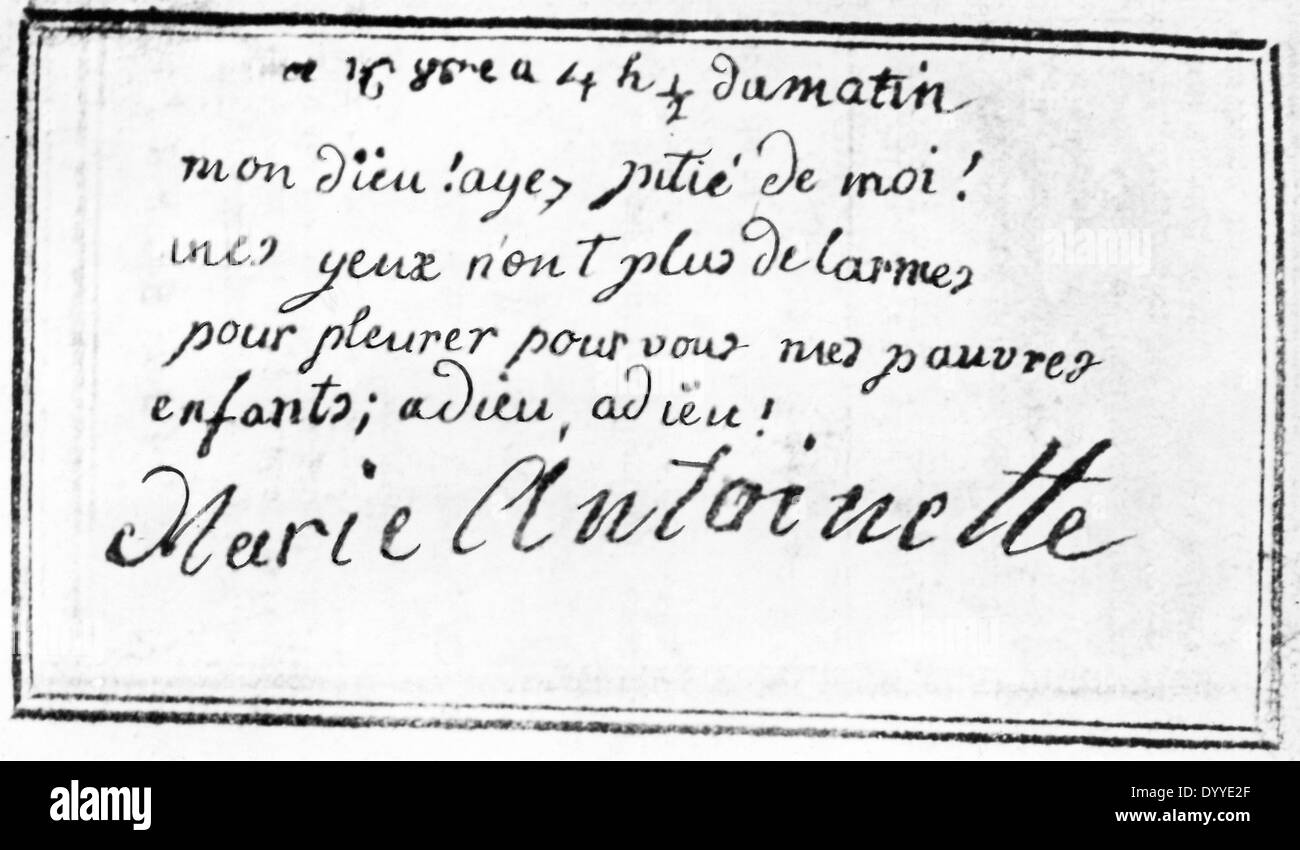 ce 16 8bre a 4 h ½ du matin
mon dïeu ! ayez pitié de moi !
mes yeux n'ont plus de larmes
pour pleurer pour vous mes pauvres
enfants ; adieu, adïeu !
Marie Antoinette
alamy
alamy
alamy
a
alamy
DYYE2F
www.alamy.com